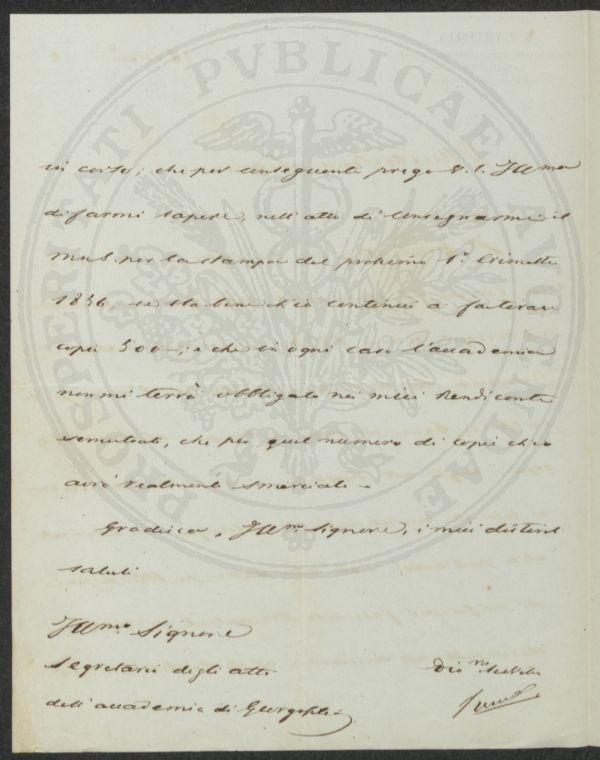 G. P. VIEUSSEUX
PROSPERITATI PVBLICAE AVGENDAE
in corso; che per conseguenti prego V. S. Illma
di farmi sapere, nell'atto di consegnarmi il
mns. per la stampa del prossimo 1º. trimestre
1836, se sta bene ch'io continui a far tirare
copie 500 –; e che in ogni caso l'accademia
non mi terrà obbligato nei miei Rendiconti
semestrali, che per quel numero di copie ch'io
avrò realmente smerciate –
Gradisca, Illmo Signore, i miei distinti
saluti
Illmo Signore
Segretario degli atti
dell'accademia di Georgofili